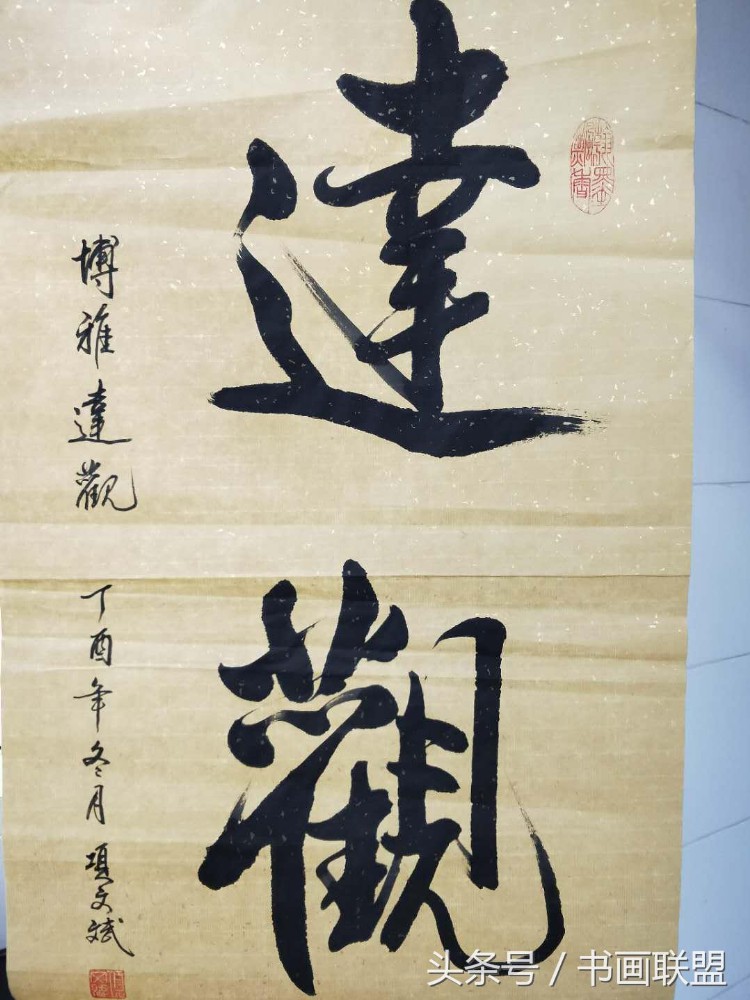 達
觀
博雅達觀
丁酉年冬月 項文斌
翰墨
头条号 / 书画联盟